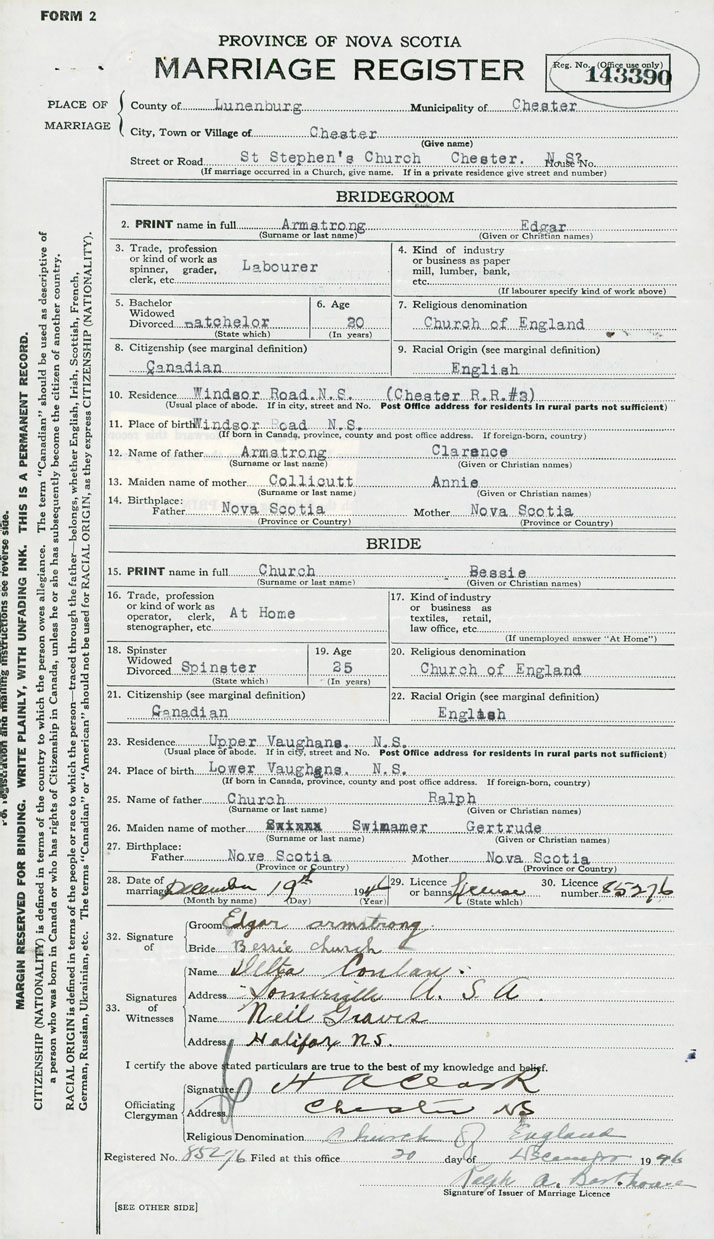 FORM 2
PROVINCE OF NOVA SCOTIA
MARRIAGE REGISTER
Reg. No. (Office use only)
143390
PLACE OF MARRIAGE
County of Lunenburg Municipality of Chester
City, Town or Village of Chester
(Give name)
Street or Road St Stephen's Church Chester. N.S? House No.
(If marriage occurred in a Church, give name. If in a private residence give street and number)
BRIDEGROOM
2. PRINT name in full Armstrong Edgar
(Surname or last name) (Given or Christian names)
3. Trade, profession or kind of work as spinner, grader, clerk, etc. Labourer
4. Kind of industry or business as paper mill, lumber, bank, etc.
(If labourer specify kind of work above)
5. Bachelor Widowed Divorced atchelor
(State which)
6. Age 30
(In years)
7. Religious denomination
Church of England
8. Citizenship (see marginal definition)
Canadian
9. Racial Origin (see marginal definition)
English
10. Residence Windsor Road.N.S. (Chester R.R.#3)
(Usual place of abode. If in city, street and No. Post Office address for residents in rural parts not sufficient)
11. Place of birth Windsor Road N.S.
(If born in Canada, province, county and post office address. If foreign-born, country)
12. Name of father Armstrong Clarence
(Surname or last name) (Given or Christian names)
13. Maiden name of mother Collicutt Annie
(Surname or last name) (Given or Christian names)
14. Birthplace:
Father Nova Scotia Mother Nova Scotia
(Province or Country) (Province or Country)
BRIDE
15. PRINT name in full Church Bessie
(Surname or last name) (Given or Christian names)
16. Trade, profession or kind of work as operator, clerk, stenographer, etc. At Home
17. Kind of industry or business as textiles, retail, law office, etc.
(If unemployed answer "At Home")
18. Spinster Widowed Divorced Spinster
(State which)
19. Age 25
(In years)
20. Religious denomination
Church of England
21. Citizenship (see marginal definition)
Canadian
22. Racial Origin (see marginal definition)
English
23. Residence Upper Vaughans. N.S.
(Usual place of abode. If in city, street and No. Post Office address for residents in rural parts not sufficient)
24. Place of birth Lower Vaughans. N.S.
(If born in Canada, province, county and post office address. If foreign-born, country)
25. Name of father Church Ralph
(Surname or last name) (Given or Christian names)
26. Maiden name of mother Swimamer Gertrude
(Surname or last name) (Given or Christian names)
27. Birthplace:
Father Nove Scotia Mother Nova Scotia
(Province or Country) (Province or Country)
28. Date of marriage December 19th 1946
(Month by name) (Day) (Year)
29. Licence or banns License
(State which)
30. Licence number 85276
32. Signature of
Groom Edgar armstrong
Bride Bessie church
33. Signatures of Witnesses
Name Conlan
Address Somerville U.S.A.
Name Neil Graves
Address Halifax N.S.
I certify the above stated particulars are true to the best of my knowledge and belief.
Officiating Clergyman
Signature H A Clark
Address Chester NS
Religious Denomination Church Of England
Registered No. 85276 Filed at this office 20 day of December 1946
Ralph A.
Signature of Issuer of Marriage Licence
[SEE OTHER SIDE]
registration and mailing instructions see reverse side.
MARGIN RESERVED FOR BINDING. WRITE PLAINLY, WITH UNFADING INK. THIS IS A PERMANENT RECORD.
CITIZENSHIP (NATIONALITY) is defined in terms of the country to which the person owes allegiance. The term "Canadian" should be used as descriptive of
a person who was born in Canada or who has rights of Citizenship in Canada, unless he or she has subsequently become the citizen of another country.
RACIAL ORIGIN is defined in terms of the people or race to which the person—traced through the father—belongs, whether English, Irish, Scottish, French,
German, Russian, Ukrainian, etc. The terms "Canadian" or "American" should not be used for RACIAL ORIGIN, as they express CITIZENSHIP (NATIONALITY).